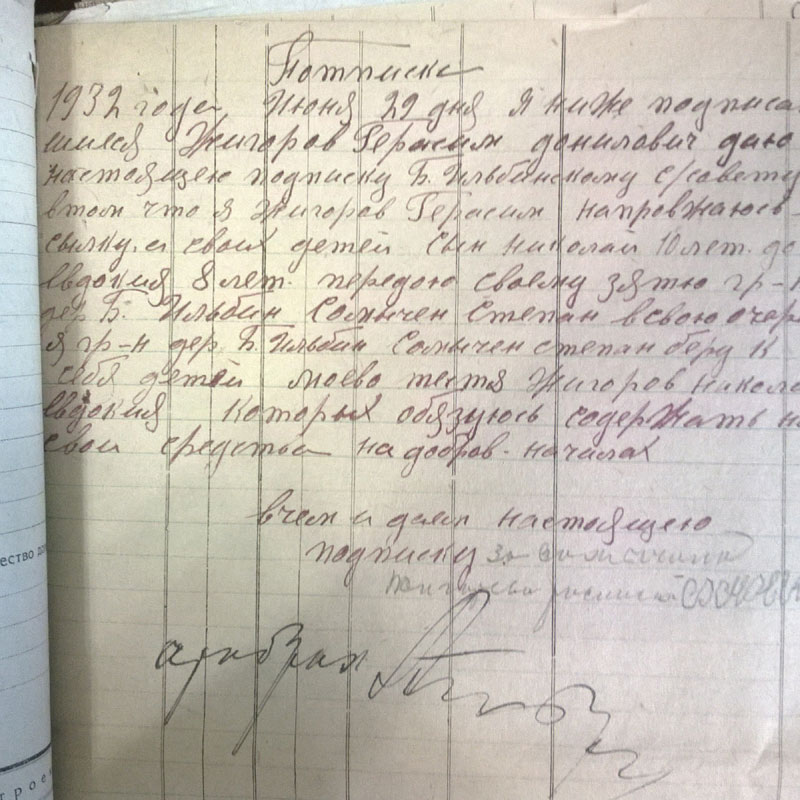 Потписка
1932 года Июня 29 дня я ниже подписа
шиися Жигоров Герасим донилович даю
настоящею подписку Б. Ильбинскому с/совету
втом что я Жигоров Герасим напровжаюсь
сылку. а своих детей сын николай 10 лет. до
Евдокия 8 лет. передою своему зятю гр-н
дер Б. Ильбин Солычен Степан всвою очер
я гр-н дер. Б. Ильбин Солычен степан беру к
себя детей моево тестя Жигоров никола
Евдокия которых обязуюсь содержать на
свои средства на добров. началах
вчем и даем настоящею
подписку за